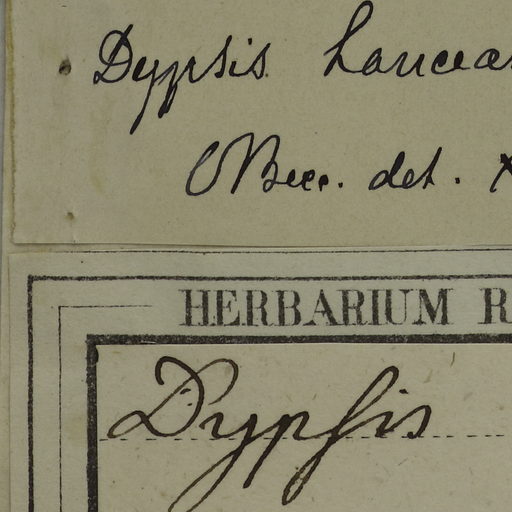 Dypsis lancea
OBecc. det. X
HERBARIUM R
Dypsis